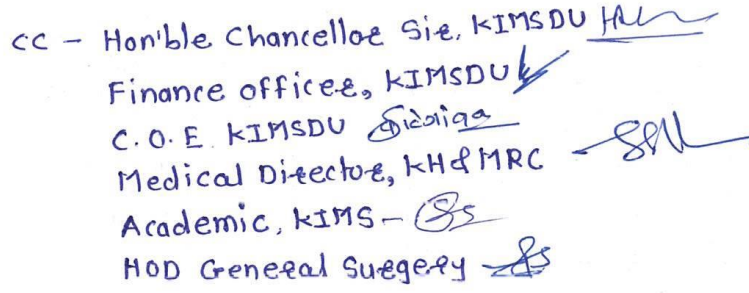 CC - Hon'ble Chancellor Sir, KIMSDU
Finance officer, KIMSDU
C.O.E KIMSDU
Medical Director, KH & MRC
Academic, KIMS -
HOD General Surgery